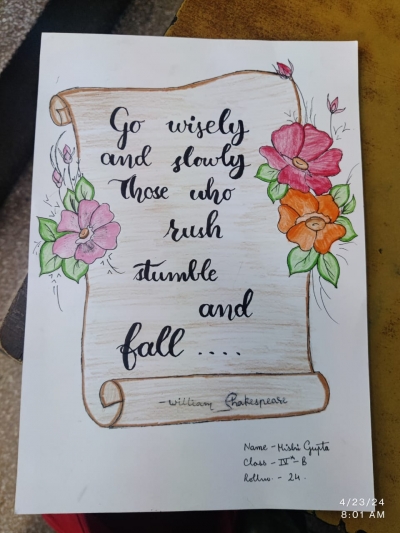 Go wisely
and slowly
Those who
rush
stumble
and
fall ....
- William Shakespeare
Name - Mishi Gupta
Class - IVth - B
Rollno. - 24.
4/23/24
8:01 AM